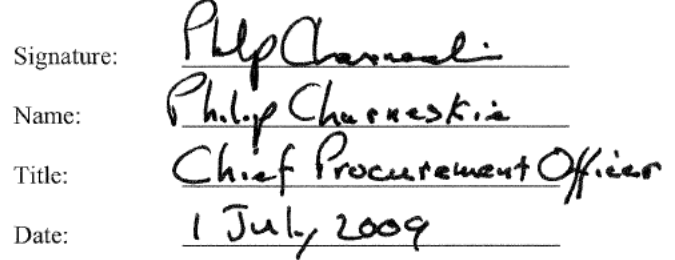 Signature: Philip Charneskie
Name: Philip Charneskie
Title: Chief Procurement Officer
Date: 1 July 2009